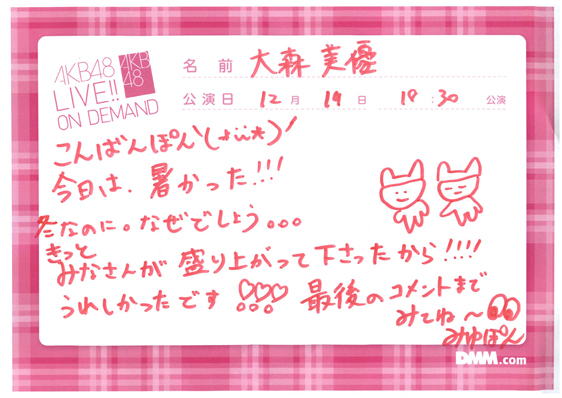 AKB48
LIVE!!
ON DEMAND
AKB
48
名前 大森美優
公演日 12月 19日 18:30 公演
こんばんぽん
今日は、暑かった!!!
冬なのに。なぜでしょう。。。
きっと
みなさんが盛り上がって下さったから!!!!
うれしかったです♡♡♡ 最後のコメントまで
みてね〜
みゆぽん
DMM.com